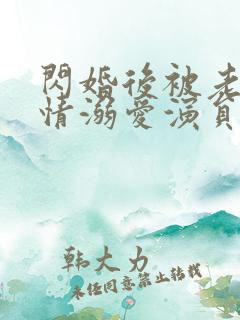 閃婚後被老
情溺愛演員
韩大力
未经同意禁止转载